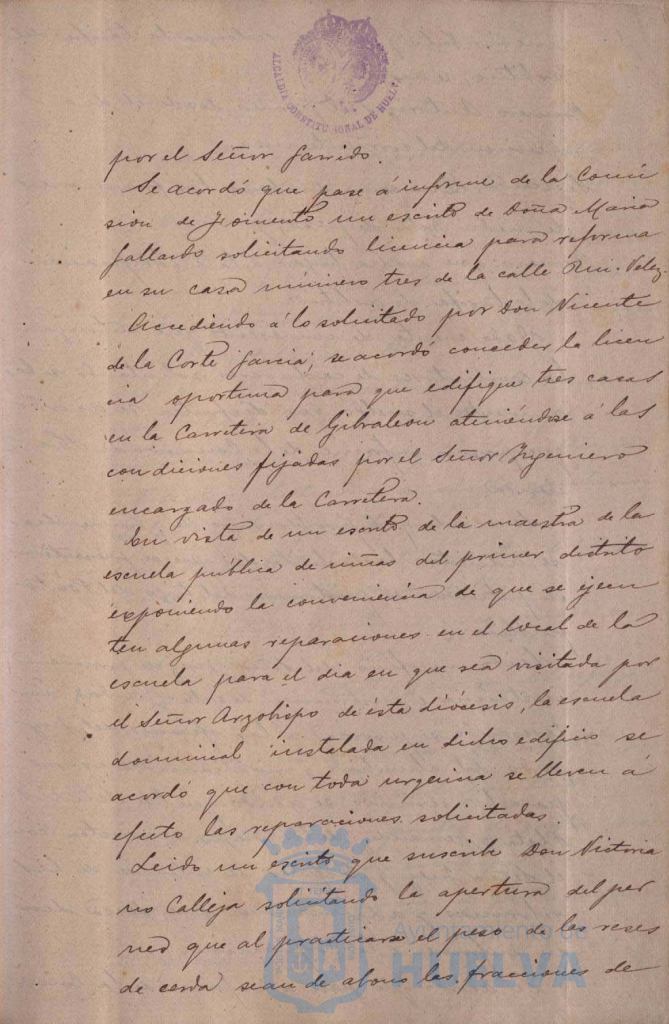 ALCALDIA CONSTITUCIONAL DE HUELVA
por el Señor Garrido.
Se acordó que pase á informe de la Comi
sion de Fomento un escrito de Doña Maria
Gallardo solicitando licencia para reforma
en su casa número tres de la calle Rui-Velez.
Accediendo á lo solicitado por Don Vicente
de la Corte Garcia; se acordó conceder la licen
cia oportuna para que edifique tres casas
en la Carretera de Gibraleon ateniéndose á las
condiciones fijadas por el Señor Ingeniero
encargado de la Carretera.
En vista de un escrito de la maestra de la
escuela pública de niñas del primer distrito
exponiendo la conveniencia de que se ejecu
ten algunas reparaciones en el local de la
escuela para el dia en que sea visitada por
el Señor Arzobispo de ésta diócesis, la escuela
dominical instalada en dicho edificio se
acordó que con toda urgencia se lleven á
efecto las reparaciones solicitadas.
Leido un escrito que suscribe Don Victoria
no Calleja solicitando la apertura del
que al practicarse el peso de las reses
de cerda sean de abono las fracciones de
Ayuntamiento de
HUELVA